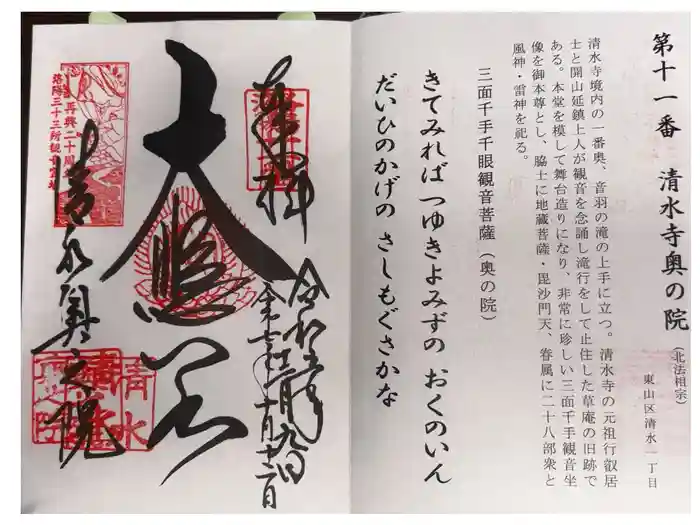 第十一番　清水寺奥の院
（北法相宗）
東山区清水一丁目
清水寺境内の一番奥、音羽の滝の上手に立つ。清水寺の元祖行叡居
士と開山延鎮上人が観音を念誦し滝行をして止住した草庵の旧跡で
ある。本堂を模して舞台造りになり、非常に珍しい三面千手観音坐
像を御本尊とし、脇士に地蔵菩薩・毘沙門天、眷属に二十八部衆と
風神・雷神を祀る。
三面千手千眼観音菩薩（奥の院）
きてみれば つゆきよみずの おくのいん
だいひのかげの さしもぐさかな
奉拝
大悲閣
清水奥之院
再興二十周年
洛陽三十三所観音霊場